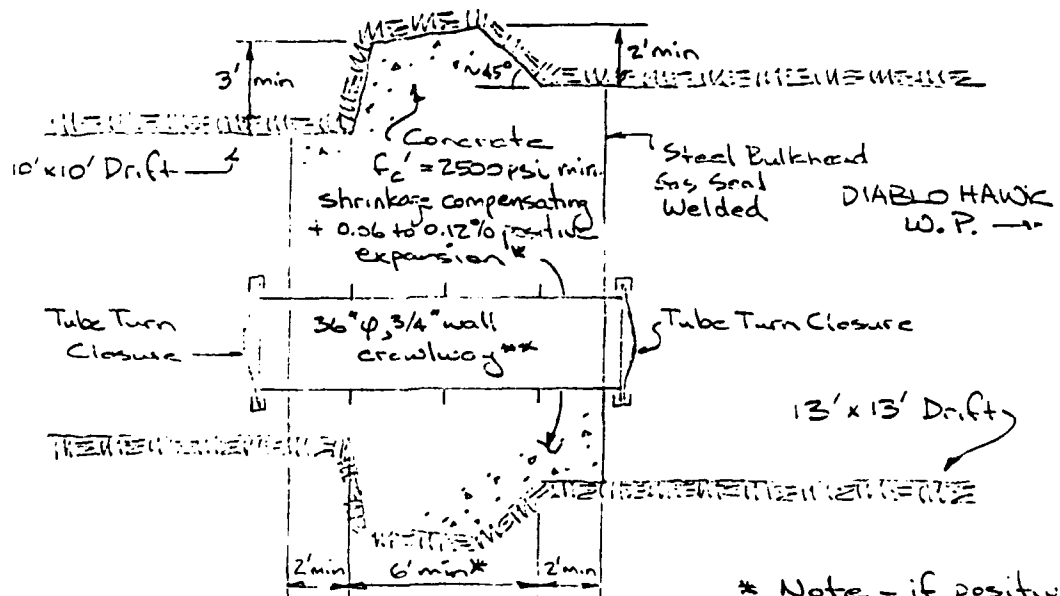 3' min
2' min
~45°
10'x10' Drift
Concrete
fc' = 2500 psi min.
shrinkage compensating
+ 0.06 to 0.12% positive
expansion*
Steel Bulkhead
Gas Seal
Welded
DIABLO HAWK
W.P. →
Tube Turn
Closure
36" φ, 3/4" wall
crawlway**
Tube Turn Closure
13' x 13' Drift
2' min
6' min*
2' min
* Note - if positiv